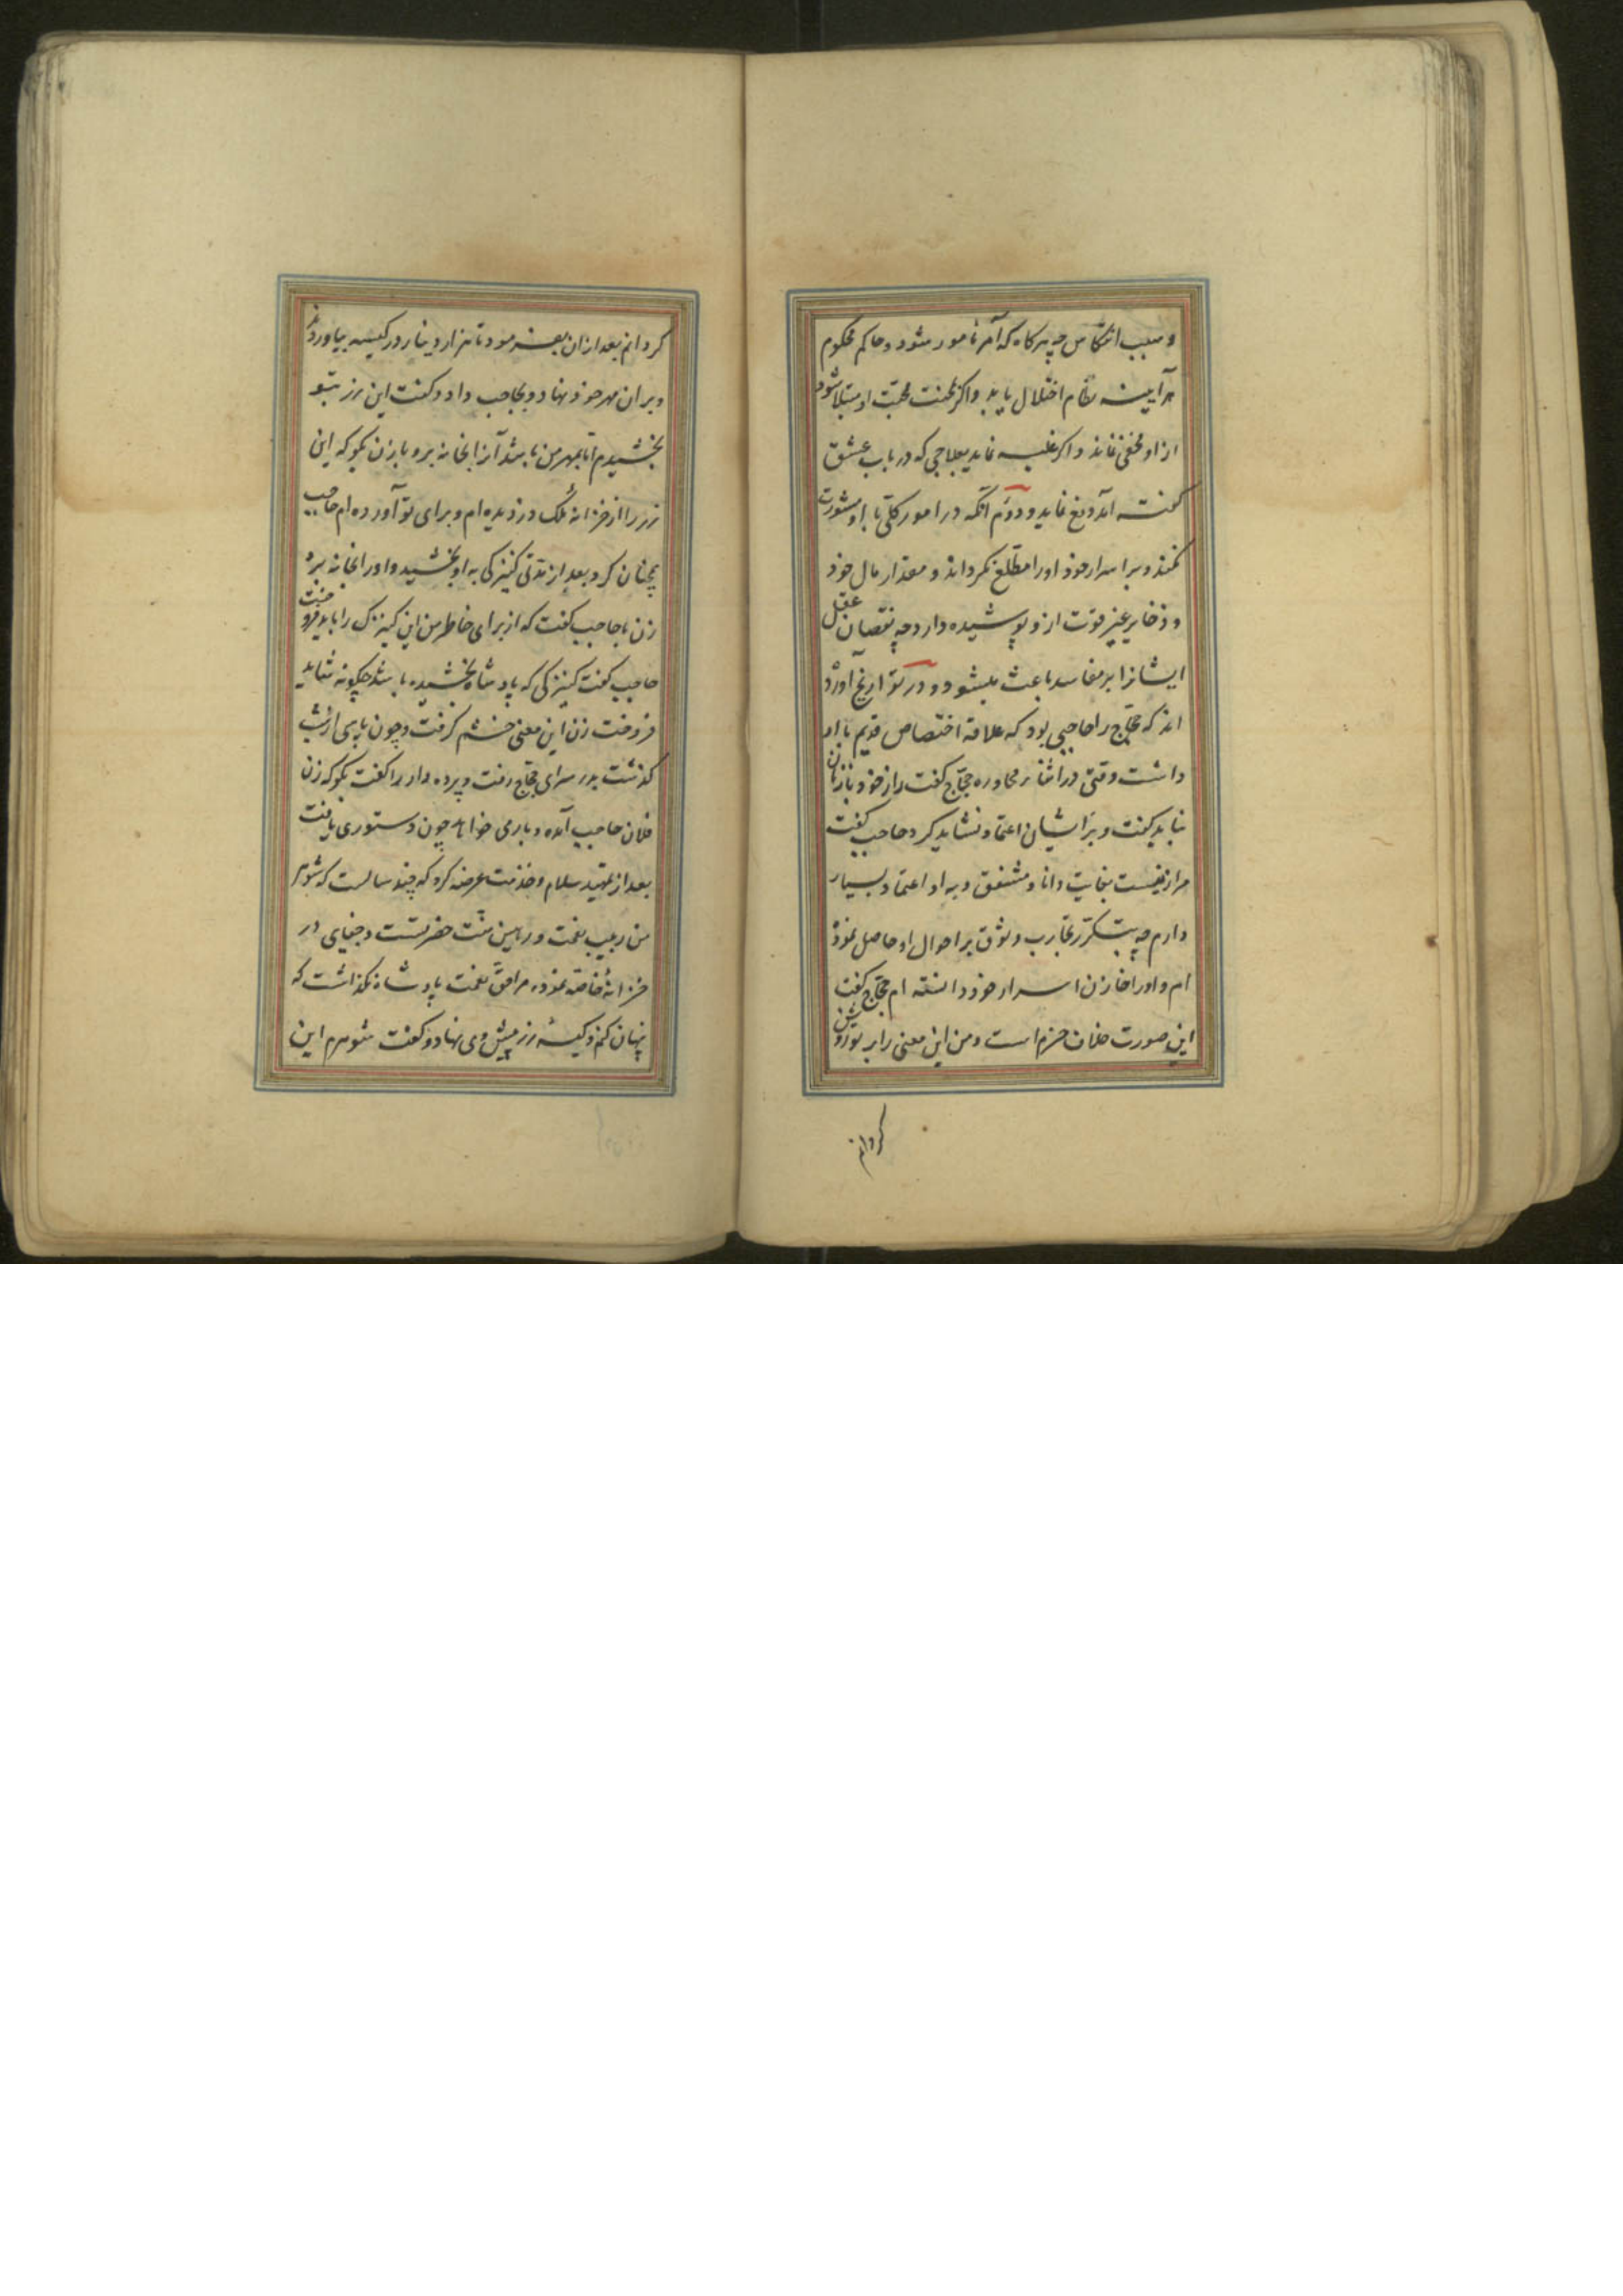 و سبب انتکاس چه هرکاه که آمر مامور شود و حاکم محکوم
هرآیینه نظام اختلال یابد واکر بمحنت محبت او مبتلا شود
ازاو مخفی نماند و اکر غلبه نماید بعلاجی که در باب عشق
کفته آمد دفع نماید و دوم آنکه در امور کلی با او مشورت
نکند و بر اسرار خود اورا مطلع نکرداند و مقدار مال خود
و ذخایر غیر قوت ازو پوشیده دارد چه نقصان عقل
ایشانرا بر مفاسد باعث میشود و در تواریخ آورده
اند که حجاج را حاجبی بود که علاقه اختصاص قدیم با او
داشت وقتی در اثناء محاوره حجاج کفت راز خود با زنان
نباید کفت و بر ایشان اعتماد نشاید کرد حاجب کفت
مرا زنیست بغایت دانا و مشفق و به او اعتماد بسیار
دارم چه بتکرر تجارب وثوق بر احوال او حاصل نموده
ام و اورا خازن اسرار خود دانسته ام حجاج کفت
این صورت خلاف حزم است و من این معنی را بر تو روشن
کردانم
کردانم بعد ازان بفرمود تا هزار دینار در کیسه بیاوردند
وبر ان مهر خود نهاد و بحاجب داد و کفت این زر بتو
بخشیدم اما بمهر من باشد آنرا بخانه بر و با زن بکو که این
زر را از خزانه ملک دزدیده ام و برای تو آورده ام حاجب
همچنان کرد بعد از مدتی کنیزکی به او بخشید و اورا بخانه برد
زن با حاجب کفت که از برای خاطر من این کنیزک را باید فروخت
حاجب کفت کنیزکی که پادشاه بخشیده باشد چکونه شاید
فروخت زن این معنی خشم کرفت و چون پاسی از شب
کذشت بدر سرای حجاج رفت و پرده دار را کفت بکو که زن
فلان حاجب آمده و بار می خواهد چون دستوری یافت
بعد از تمهید سلام و خدمت عرضه کرد که چند سالست که شوهر
من ربیب نعمت و رهین منت حضرتست و جنایی در
خزانه خاصه نموده مرا حق نعمت پادشاه نکذاشت که
پنهان کنم و کیسه زر پیش وی نهاد و کفت شوهرم این